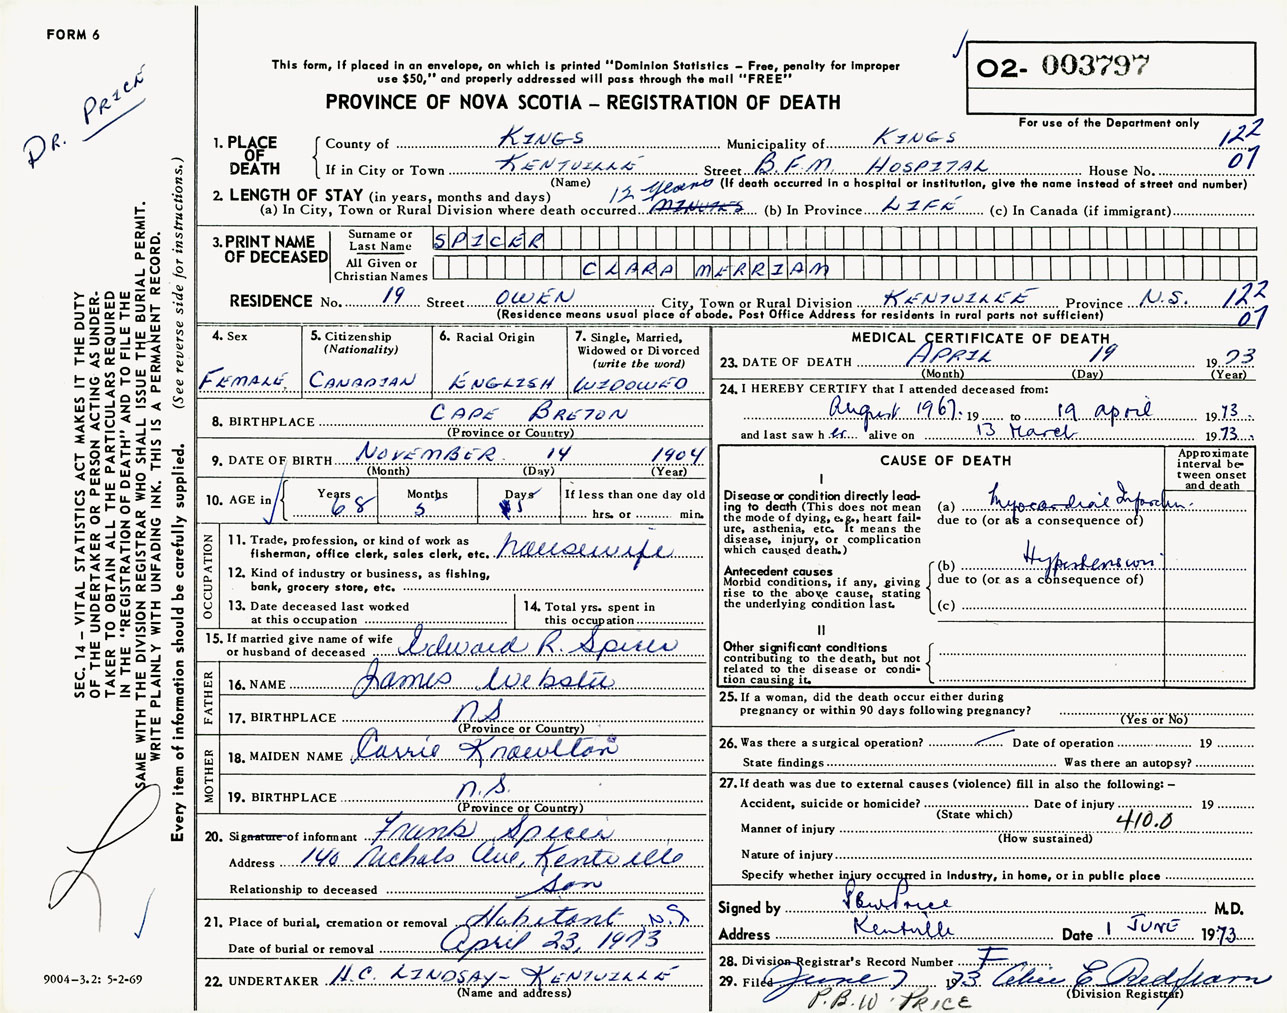 FORM 6
DR. PRICE
This form, if placed in an envelope, on which is printed "Dominion Statistics – Free, penalty for improper
use $50," and properly addressed will pass through the mail "FREE"
PROVINCE OF NOVA SCOTIA – REGISTRATION OF DEATH
O2- 003797
For use of the Department only
122
07
1. PLACE OF DEATH
County of KINGS Municipality of KINGS
If in City or Town KENTVILLE Street B.F.M. HOSPITAL House No.
(Name) (If death occurred in a hospital or institution, give the name instead of street and number)
2. LENGTH OF STAY (in years, months and days)
(a) In City, Town or Rural Division where death occurred 12 years MINUTES (b) In Province LIFE (c) In Canada (if immigrant)
3. PRINT NAME OF DECEASED
Surname or Last Name SPICER
All Given or Christian Names CLARA MERRIAM
RESIDENCE No. 19 Street OWEN City, Town or Rural Division KENTVILLE Province N.S. 122
(Residence means usual place of abode. Post Office Address for residents in rural parts not sufficient) 07
4. Sex FEMALE
5. Citizenship (Nationality) CANADIAN
6. Racial Origin ENGLISH
7. Single, Married, Widowed or Divorced (write the word) WIDOWED
8. BIRTHPLACE CAPE BRETON
(Province or Country)
9. DATE OF BIRTH NOVEMBER 14 1904
(Month) (Day) (Year)
10. AGE in Years 68 Months 5 Days If less than one day old
hrs. or min.
OCCUPATION
11. Trade, profession, or kind of work as
fisherman, office clerk, sales clerk, etc. housewife
12. Kind of industry or business, as fishing,
bank, grocery store, etc.
13. Date deceased last worked at this occupation
14. Total yrs. spent in this occupation
15. If married give name of wife
or husband of deceased Edward R. Spicer
FATHER
16. NAME James Webster
17. BIRTHPLACE NS
(Province or Country)
MOTHER
18. MAIDEN NAME Carrie Knowlton
19. BIRTHPLACE N.S.
(Province or Country)
20. Signature of informant Frank Spicer
Address 140 Nichols Ave, Kentville
Relationship to deceased Son
21. Place of burial, cremation or removal Habitant N.S
Date of burial or removal April 23, 1973
22. UNDERTAKER H.C. LINDSAY – KENTVILLE
(Name and address)
MEDICAL CERTIFICATE OF DEATH
23. DATE OF DEATH APRIL 19 1973
(Month) (Day) (Year)
24. I HEREBY CERTIFY that I attended deceased from:
August 1967. 19 to 19 April 1973
and last saw her alive on 13 March 1973
CAUSE OF DEATH
Approximate interval between onset and death
I
Disease or condition directly leading to death (This does not
mean the mode of dying, e.g., heart failure, asthenia, etc. It means the
disease, injury, or complication
which caused death.)
(a) Myocardial Infarction
due to (or as a consequence of)
Antecedent causes
Morbid conditions, if any, giving
rise to the above cause, stating
the underlying condition last.
(b) Hypertension
due to (or as a consequence of)
(c)
II
Other significant conditions
contributing to the death, but not
related to the disease or condition causing it.
25. If a woman, did the death occur either during
pregnancy or within 90 days following pregnancy?
(Yes or No)
26. Was there a surgical operation? Date of operation 19
State findings Was there an autopsy?
27. If death was due to external causes (violence) fill in also the following: –
Accident, suicide or homicide? Date of injury 19
(State which)
Manner of injury 410.0
(How sustained)
Nature of injury
Specify whether injury occurred in Industry, in home, or in public place
Signed by PBW Price M.D.
Address Kentville Date 1 JUNE 1973
28. Division Registrar's Record Number F
29. Filed June 7 1973
(Division Registrar)
P.B.W. PRICE
SEC. 14 – VITAL STATISTICS ACT MAKES IT THE DUTY
OF THE UNDERTAKER OR PERSON ACTING AS UNDER-
TAKER TO OBTAIN ALL THE PARTICULARS REQUIRED
IN THE "REGISTRATION OF DEATH" AND TO FILE THE
SAME WITH THE DIVISION REGISTRAR WHO SHALL ISSUE THE BURIAL PERMIT.
WRITE PLAINLY WITH UNFADING INK. THIS IS A PERMANENT RECORD.
Every item of information should be carefully supplied. (See reverse side for instructions.)
9004–3.2: 5-2-69